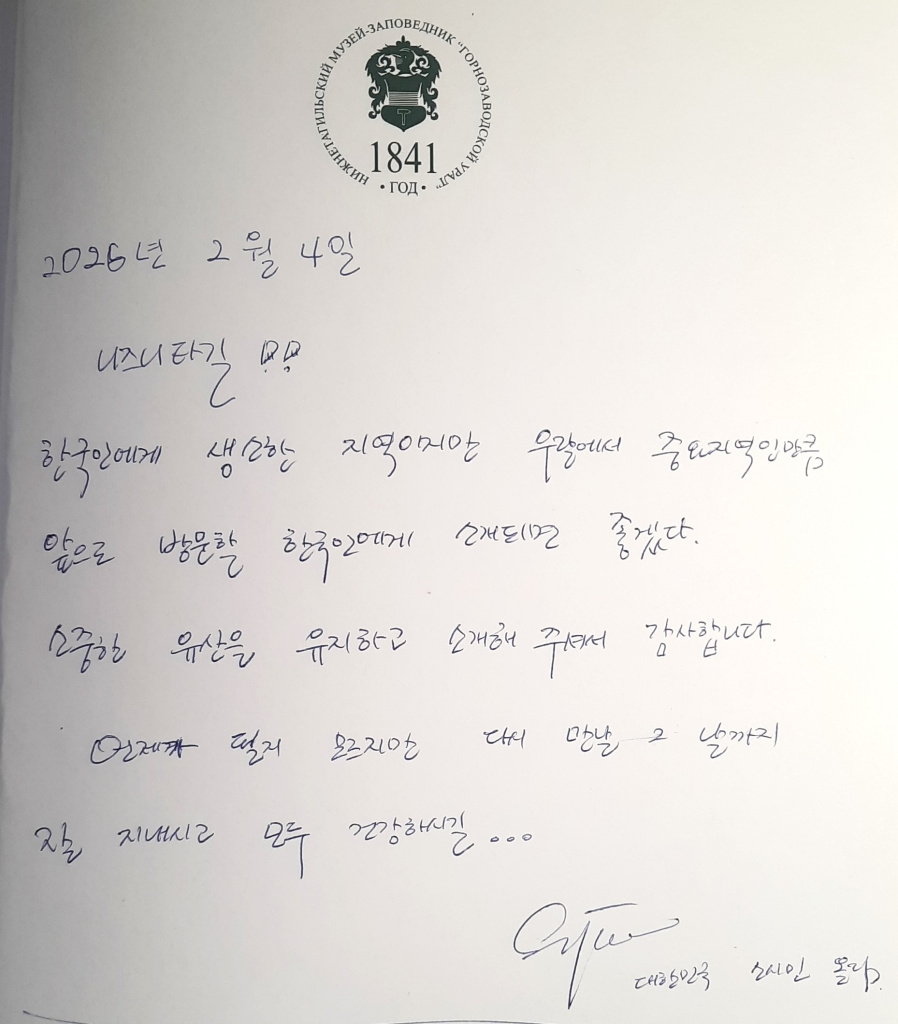 НИЖНЕТАГИЛЬСКИЙ МУЗЕЙ-ЗАПОВЕДНИК "ГОРНОЗАВОДСКОЙ УРАЛ"
1841
• ГОД •
2026년 2월 4일
니즈니타길 !!
한국인에게 생소한 지역이지만 우랄에서 중요지역인만큼
앞으로 방문할 한국인에게 소개되면 좋겠다.
소중한 유산을 유지하고 소개해 주셔서 감사합니다.
언제가 될지 모르지만 다시 만날 그 날까지
잘 지내시고 모두 건강하시길...
대한민국